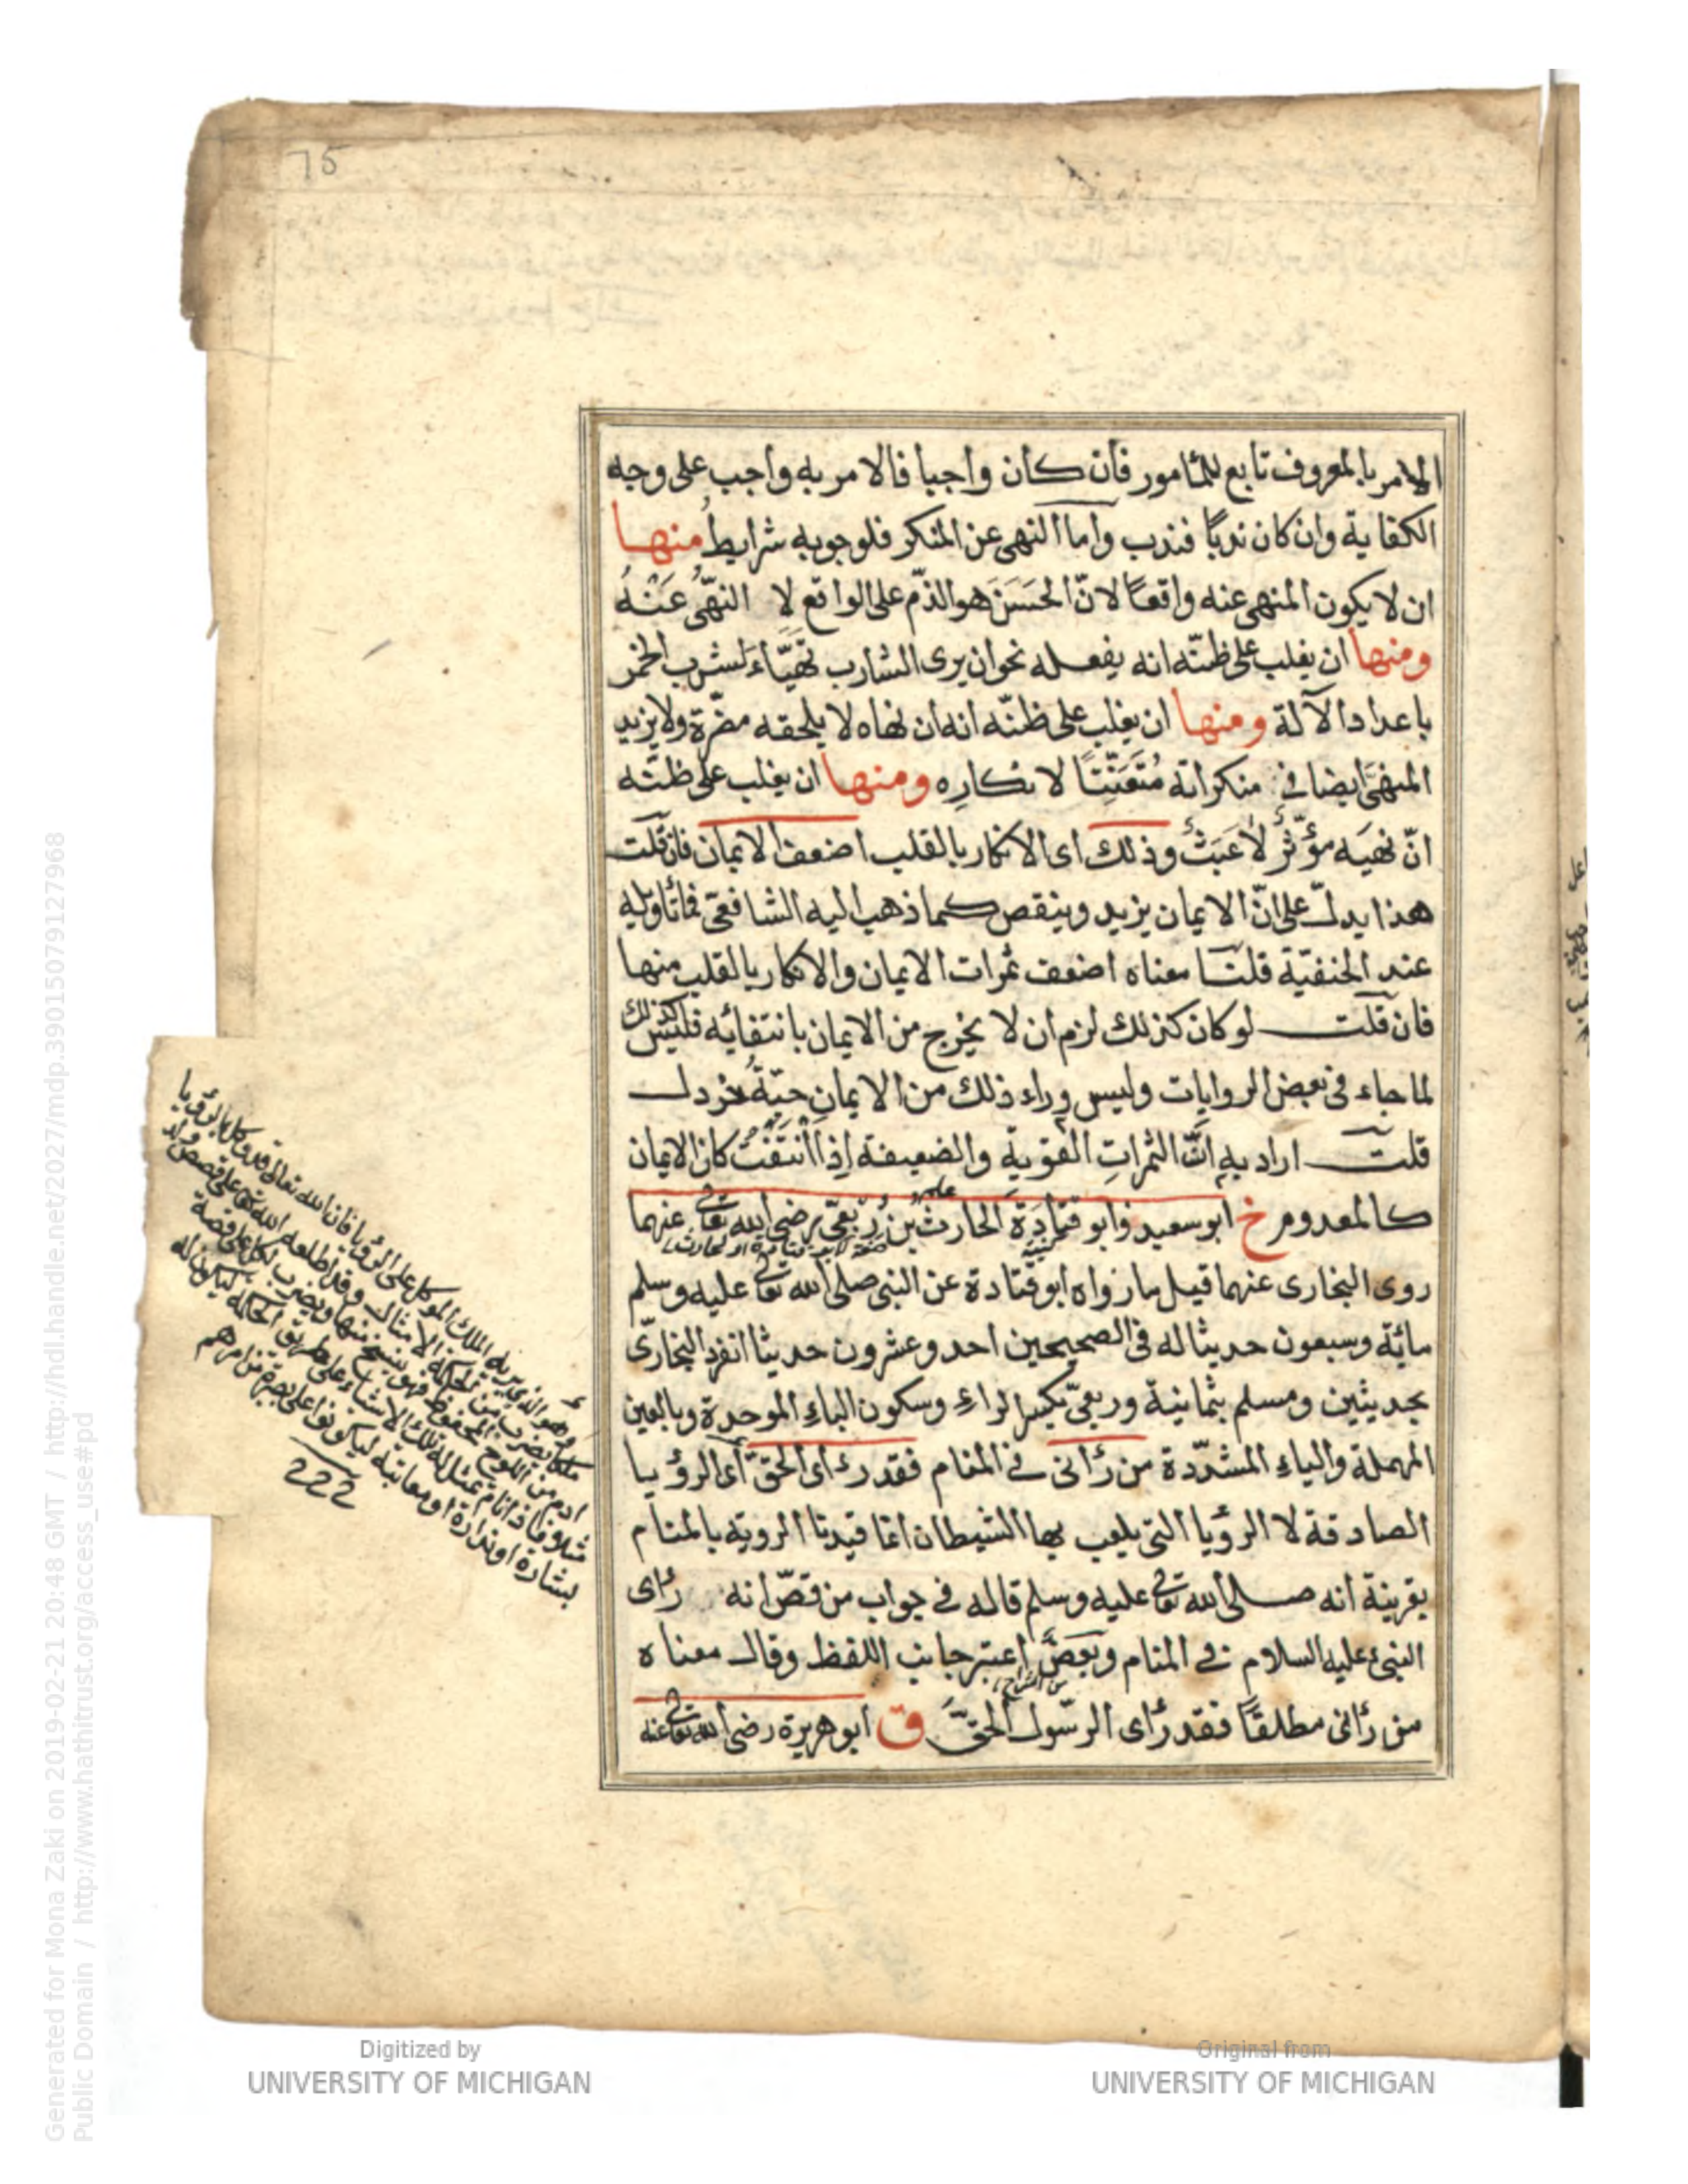 75
الامر بالمعروف تابع للمأمور فان كان واجبا فالامر به واجب على وجه
الكفاية وان كان ندبًا فندب واما النهى عن المنكر فلوجوبه شرايط منها
ان لا يكون المنهى عنه واقعًا لانّ الحَسَنَ هو الذّم على الواقع لا النهىُ عَنْهُ
ومنها ان يغلب على ظنّه انه يفعله نحو ان يرى الشارب تهيّاءَ لشرب الخمر
باعداد الآلة ومنها ان يغلب على ظنّه انه ان نهاه لا يلحقه مضرّة ولا يزيد
المنهىَّ ايضا فى منكراته مُتَعَنِّتًا لانكارِه ومنها ان يغلب على ظنّه
انّ نهيَه مؤثّرٌ لا عَبَثٌ وذلك اى الانكار بالقلب اضعف الايمان فان قلت
هذا يدلّ على انّ الايمان يزيد وينقص كما ذهب اليه الشافعىّ فما تاويله
عند الحنفيّة قلنا معناه اضعف ثمرات الايمان والانكار بالقلب منها
فان قلت لو كان كذلك لزم ان لا يخرج من الايمان بانتفائه فليس كذلك
لما جاء فى بعض الروايات وليس وراء ذلك من الايمانِ حبّةُ خردل
قلت اراد به انّ الثمراتِ القوية والضعيفة اِذا انْتَفَتْ كان الايمان
كالمعدوم خ ابو سعيد وابو قتادَةَ الحارث بن رِبْعىّ رضى الله تعالى عنهما
روى البخارى عنهما قيل ما رواه ابو قتادة عن النبى صلى الله تعالى عليه وسلم
مائة وسبعون حديثا له فى الصحيحين احد وعشرون حديثا انفرد البخارىّ
بحديثين ومسلم بثمانية وربعىّ بكسر الراءِ وسكون الباءِ الموحدة وبالعين
المهملة والياءِ المشدّدة من رأنى فى المنام فقد رءاى الحقّ اى الرؤيا
الصادقة لا الرؤيا التى يلعب بها الشيطان انما قيدنا الروية بالمنام
بقرينة انه صلى الله تعالى عليه وسلم قاله فى جواب من قصّ انه رأى
النبىء عليه السلام فى المنام وبعضٌ اعتبر جانب اللفظ وقال معناه
من الشراح
من رأنى مطلقًا فقد رأى الرسول الحقَّ ق ابو هريرة رضى الله تعالى عنه
Digitized by
UNIVERSITY OF MICHIGAN
Original from
UNIVERSITY OF MICHIGAN
Generated for Mona Zaki on 2019-02-21 20:48 GMT / http://hdl.handle.net/2027/mdp.39015079127968
Public Domain / http://www.hathitrust.org/access_use#pd